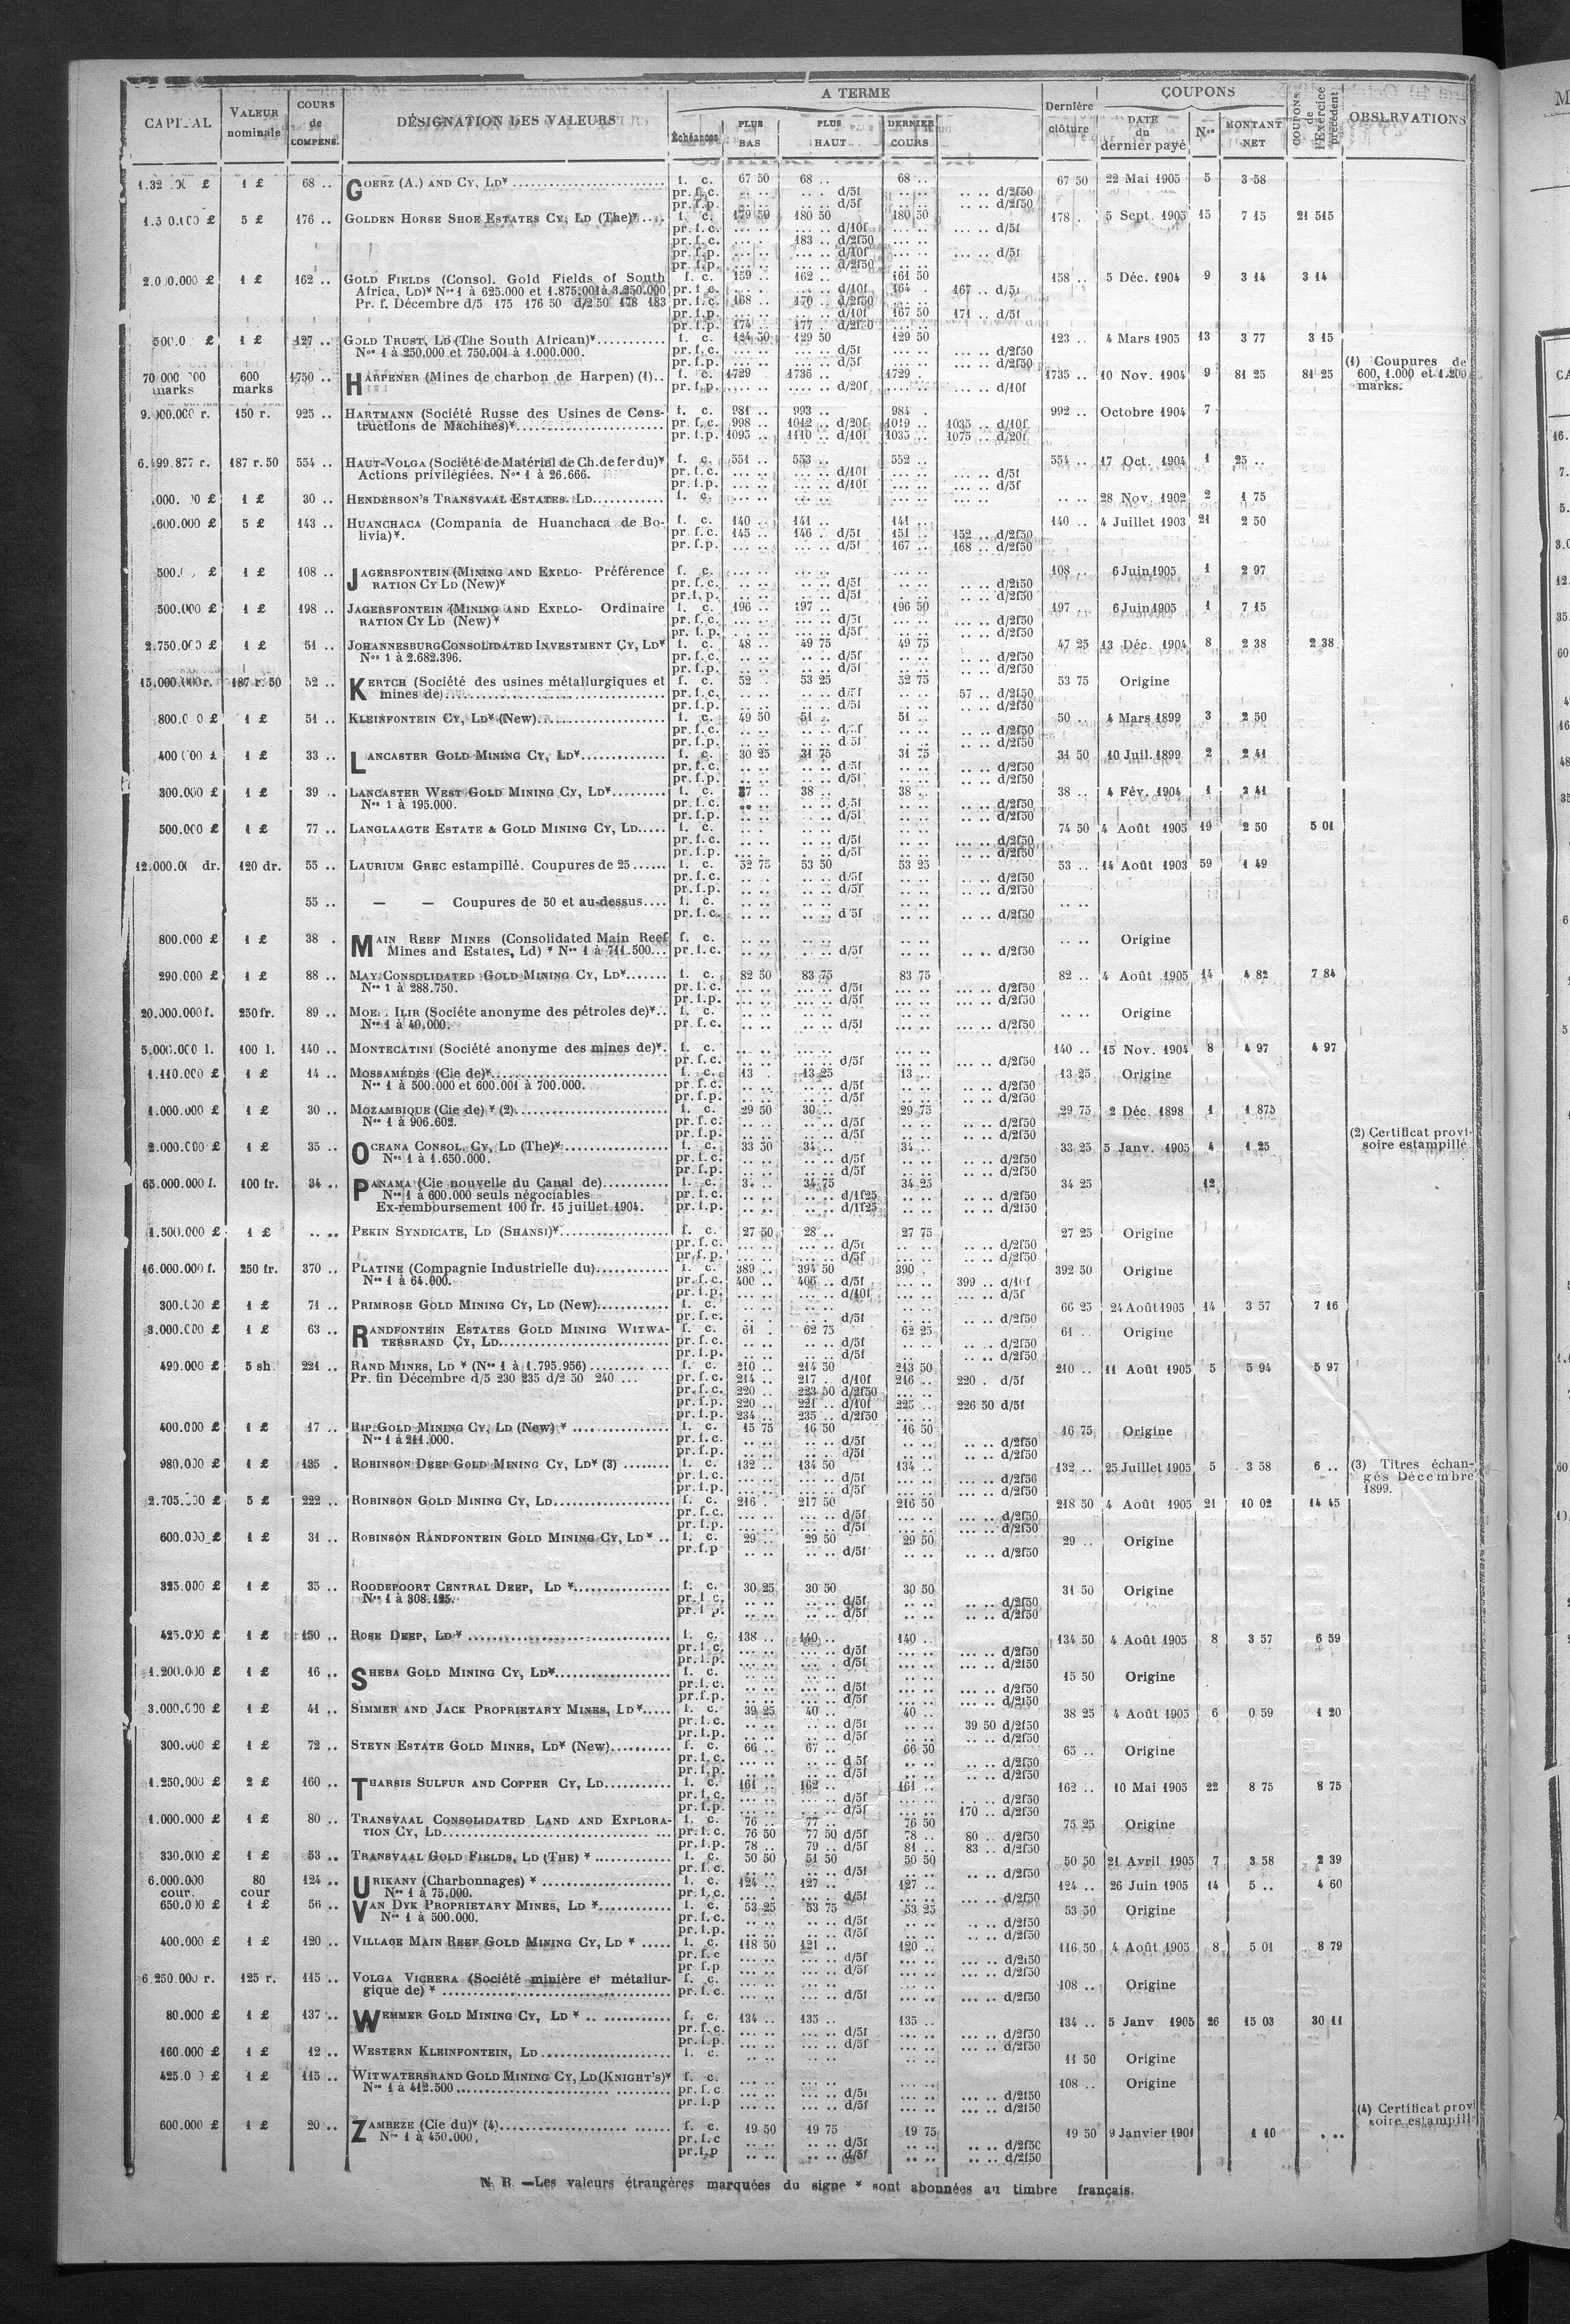 CAPITAL VALEUR nominale COURS de COMPENS. DÉSIGNATION DES VALEURS A TERME Dernière clôture COUPONS COUPONS de l'Exercice précédent OBSERVATIONS
Échéances PLUS BAS PLUS HAUT DERNIER COURS DATE du dernier payé Nos MONTANT NET
1 £ 68 .. GOERZ (A.) AND CY, LD* f. c. 67 50 68 .. 68 .. 67 50 22 Mai 1905 5 3 58
pr. f. c. .. .. .. .. d/5f .. .. .. .. d/2f50
pr. f. p. .. .. .. .. d/5f .. .. .. .. d/2f50
5 £ 176 .. GOLDEN HORSE SHOE ESTATES CY, LD (The)* f. c. 179 50 180 50 180 50 178 .. 5 Sept. 1905 15 7 15 21 515
pr. f. c. ... .. ... .. d/10f ... .. ... .. d/5f
pr. f. c. ... .. 183 .. d/2f50 ... ..
pr. f. p. ... .. ... .. d/10f ... .. ... .. d/5f
pr. f. p. ... .. ... .. d/2f50 ... ..
1 £ 162 .. GOLD FIELDS (Consol. Gold Fields of South f. c. 159 .. 162 .. 161 50 158 .. 5 Déc. 1904 9 3 14 3 14
Africa, LD)* Nos 1 à 625.000 et 1.875.001 à 3.250.000 pr. f. c. ... .. ... .. d/10f 164 . 167 .. d/5f
Pr. f. Décembre d/5 175 176 50 d/2 50 178 183 pr. f. c. 168 .. 170 .. d/2f50 ... ..
pr. f. p. ... .. ... .. d/10f 167 50 171 .. d/5f
pr. f. p. 174 .. 177 .. d/2f50 ... ..
1 £ 127 .. GOLD TRUST, LD (The South African)* f. c. 124 50 129 50 129 50 123 .. 4 Mars 1905 13 3 77 3 15
Nos 1 à 250.000 et 750.001 à 1.000.000. pr. f. c. ... .. ... .. d/5f ... .. ... .. d/2f50
pr. f. p. ... .. ... .. d/5f ... .. ... .. d/2f50 (1) Coupures de
600 marks 1750 .. HARPENER (Mines de charbon de Harpen) (1).. f. c. 1729 1735 .. 1729 .. 1735 .. 10 Nov. 1904 9 81 25 81 25 600, 1.000 et 1.200
pr. f. p. ... .. ... .. d/20f ... .. ... .. d/10f marks.
150 r. 925 .. HARTMANN (Société Russe des Usines de Cons- f. c. 981 .. 993 .. 984 . 992 .. Octobre 1904 7
tructions de Machines)* pr. f. c. 998 .. 1012 .. d/20f 1019 .. 1035 .. d/10f
pr. f. p. 1095 .. 1110 .. d/10f 1035 .. 1075 .. d/20f
187 r. 50 554 .. HAUT-VOLGA (Société de Matériel de Ch. de fer du)* f. c. 551 .. 553 .. 552 .. 554 .. 17 Oct. 1904 1 25 ..
Actions privilégiées. Nos 1 à 26.666. pr. f. c. ... .. ... .. d/10f ... .. ... .. d/5f
pr. f. p. ... .. ... .. d/10f ... .. ... .. d/5f
1 £ 30 .. HENDERSON'S TRANSVAAL ESTATES. LD f. c. ... .. ... .. 28 Nov. 1902 2 1 75
5 £ 143 .. HUANCHACA (Compania de Huanchaca de Bo- f. c. 140 .. 141 .. 141 .. 140 .. 4 Juillet 1903 21 2 50
livia)*. pr. f. c. 145 .. 146 . d/5f 151 .. 152 .. d/2f50
pr. f. p. ... .. ... .. d/5f 167 .. 168 .. d/2f50
1 £ 108 .. JAGERSFONTEIN (MINING AND EXPLO- Préférence f. c. ... .. ... .. ... .. 108 .. 6 Juin 1905 1 2 97
RATION CY LD (New)* pr. f. c. ... .. ... .. d/5f ... .. ... .. d/2f50
pr. f. p. ... .. ... .. d/5f ... .. ... .. d/2f50
500.000 £ 1 £ 198 .. JAGERSFONTEIN (MINING AND EXPLO- Ordinaire f. c. 196 .. 197 .. 196 50 197 .. 6 Juin 1905 1 7 15
RATION CY LD (New)* pr. f. c. ... .. ... .. d/5f ... .. ... .. d/2f50
pr. f. p. ... .. ... .. d/5f ... .. ... .. d/2f50
2.750.000 £ 1 £ 51 .. JOHANNESBURG CONSOLIDATED INVESTMENT CY, LD* f. c. 48 .. 49 75 49 75 47 25 13 Déc. 1904 8 2 38 2 38
Nos 1 à 2.682.396. pr. f. c. .. .. .. .. d/5f .. .. .. .. d/2f50
pr. f. p. .. .. .. .. d/5f .. .. .. .. d/2f50
15.000.000 r. 187 r. 50 52 .. KERTCH (Société des usines métallurgiques et f. c. 52 .. 53 25 52 75 53 75 Origine
mines de) pr. f. c. .. .. .. .. d/5f .. .. 57 .. d/2f50
pr. f. p. .. .. .. .. d/5f .. .. .. .. d/2f50
1 £ 51 .. KLEINFONTEIN CY, LD* (New) f. c. 49 50 51 .. 51 .. 50 .. 4 Mars 1899 3 2 50
pr. f. c. .. .. .. .. d/5f .. .. .. .. d/2f50
pr. f. p. .. .. .. .. d/5f .. .. .. .. d/2f50
1 £ 33 .. LANCASTER GOLD MINING CY, LD* f. c. 30 25 31 75 31 75 31 50 10 Juil. 1899 2 2 41
pr. f. c. .. .. .. .. d/5f .. .. .. .. d/2f50
pr. f. p. .. .. .. .. d/5f .. .. .. .. d/2f50
300.000 £ 1 £ 39 .. LANCASTER WEST GOLD MINING CY, LD* f. c. 37 .. 38 .. 38 .. 38 .. 4 Fév. 1904 1 2 41
Nos 1 à 195.000. pr. f. c. .. .. .. .. d/5f .. .. .. .. d/2f50
pr. f. p. .. .. .. .. d/5f .. .. .. .. d/2f50
500.000 £ 1 £ 77 .. LANGLAAGTE ESTATE & GOLD MINING CY, LD f. c. .. .. .. .. .. .. 74 50 4 Août 1905 19 2 50 5 01
pr. f. c. .. .. .. .. d/5f .. .. ... .. d/2f50
pr. f. p. ... .. .. .. d/5f .. .. ... .. d/2f50
120 dr. 55 .. LAURIUM GREC estampillé. Coupures de 25 f. c. 52 75 53 50 53 25 53 .. 14 Août 1903 59 1 49
pr. f. c. .. .. .. .. d/5f .. .. .. .. d/2f50
pr. f. p. .. .. .. .. d/5f .. .. .. .. d/2f50
55 .. — — Coupures de 50 et au-dessus f. c. .. .. .. .. .. .. .. ..
pr. f. c. .. .. .. .. d/5f .. .. .. .. d/2f50
800.000 £ 1 £ 38 . MAIN REEF MINES (Consolidated Main Reef f. c. .. .. .. .. .. .. .. .. Origine
Mines and Estates, Ld) * Nos 1 à 711.500... pr. f. c. .. .. .. .. d/5f .. .. .. .. d/2f50
290.000 £ 1 £ 88 .. MAY CONSOLIDATED GOLD MINING CY, LD* f. c. 82 50 83 75 83 75 82 .. 4 Août 1905 14 4 82 7 84
Nos 1 à 288.750. pr. f. c. ... .. ... .. d/5f ... .. ... .. d/2f50
pr. f. p. ... .. ... .. d/5f ... .. ... .. d/2f50
20.000.000 f. 250 fr. 89 .. ILIR (Sociéte anonyme des pétroles de)*.. f. c. .. .. .. .. .. .. .. .. Origine
Nos 1 à 40.000. pr. f. c. .. .. ... .. d/5f .. .. ... .. d/2f50
5.000.000 l. 100 l. 140 .. MONTECATINI (Société anonyme des mines de)*. f. c. ... .. ... .. ... .. 140 .. 15 Nov. 1904 8 4 97 4 97
pr. f. c. ... .. ... .. d/5f ... .. ... .. d/2f50
1.110.000 £ 1 £ 14 .. MOSSAMÉDÈS (Cie de)* f. c. 13 . 13 25 13 .. 13 25 Origine
Nos 1 à 500.000 et 600.001 à 700.000. pr. f. c. .. .. .. .. d/5f .. .. .. .. d/2f50
pr. f. p. .. .. .. .. d/5f .. .. .. .. d/2f50
1.000.000 £ 1 £ 30 .. MOZAMBIQUE (Cie de) * (2) f. c. 29 50 30 .. 29 75 29 75 2 Déc. 1898 1 1 875
Nos 1 à 906.602. pr. f. c. .. .. .. .. d/5f .. .. .. .. d/2f50
pr. f. p. .. .. .. .. d/5f .. .. .. .. d/2f50 (2) Certificat provi-
2.000.000 £ 1 £ 35 .. OCEANA CONSOL. CY, LD (The)* f. c. 33 50 34 .. 34 .. 33 25 5 Janv. 1905 4 1 25 soire estampillé
Nos 1 à 1.650.000. pr. f. c. .. .. .. .. d/5f .. .. .. .. d/2f50
pr. f. p. .. .. .. .. d/5f .. .. .. .. d/2f50
65.000.000 f. 100 fr. 34 .. PANAMA (Cie nouvelle du Canal de) f. c. 34 75 34 25 34 25 12
Nos 1 à 600.000 seuls négociables pr. f. c. .. .. .. .. d/1f25 .. .. .. .. d/2f50
Ex-remboursement 100 fr. 15 juillet 1904. pr. f. p. .. .. .. .. d/1f25 .. .. .. .. d/2f50
1.500.000 £ 1 £ .. .. PEKIN SYNDICATE, LD (SHANSI)* f. c. 27 50 28 .. 27 75 27 25 Origine
pr. f. c. .. .. .. .. d/5f .. .. .. .. d/2f50
pr. f. p. .. .. .. .. d/5f .. .. .. .. d/2f50
16.000.000 f. 250 fr. 370 .. PLATINE (Compagnie Industrielle du) f. c. 389 .. 394 50 390 .. 392 50 Origine
Nos 1 à 64.000. pr. f. c. 400 .. 406 .. d/5f ... .. 399 .. d/10f
pr. f. p. ... .. ... .. d/10f ... .. ... .. d/5f
300.000 £ 1 £ 71 .. PRIMROSE GOLD MINING CY, LD (New) f. c. .. .. .. .. .. .. 66 25 24 Août 1905 14 3 57 7 16
pr. f. c. .. .. .. .. d/5f .. .. .. .. d/2f50
3.000.000 £ 1 £ 63 .. RANDFONTEIN ESTATES GOLD MINING WITWA- f. c. 61 . 62 75 62 25 61 .. Origine
TERSRAND CY, LD pr. f. c. .. .. .. .. d/5f .. .. .. .. d/2f50
pr. f. p. .. .. .. .. d/5f .. .. .. .. d/2f50
490.000 £ 5 sh. 221 .. RAND MINES, LD * (Nos 1 à 1.795.956) f. c. 210 .. 214 50 213 50 210 .. 11 Août 1905 5 5 94 5 97
Pr. fin Décembre d/5 230 235 d/2 50 240 ... pr. f. c. 214 .. 217 . d/10f 216 .. 220 . d/5f
pr. f. c. 220 .. 223 50 d/2f50 ... ..
pr. f. p. 220 .. 221 .. d/10f 225 .. 226 50 d/5f
pr. f. p. 234 .. 235 .. d/2f50 ... ..
400.000 £ 1 £ 17 .. RIP GOLD MINING CY, LD (New) * f. c. 15 75 16 50 16 50 16 75 Origine
Nos 1 à 211.000. pr. f. c. .. .. .. .. d/5f .. .. .. .. d/2f50
pr. f. p. .. .. .. .. d/5f .. .. .. .. d/2f50
980.000 £ 1 £ 135 . ROBINSON DEEP GOLD MINING CY, LD* (3) f. c. 132 .. 134 50 134 .. 132 .. 25 Juillet 1905 5 3 58 6 .. (3) Titres échan-
pr. f. c. ... .. ... .. d/5f ... .. ... .. d/2f50 gés Décembre
pr. f. p. ... .. ... .. d/5f ... .. ... .. d/2f50 1899.
5 £ 222 .. ROBINSON GOLD MINING CY, LD f. c. 216 . 217 50 216 50 218 50 4 Août 1905 21 10 02 14 45
pr. f. c. ... .. ... .. d/5f ... .. ... .. d/2f50
pr. f. p. ... .. ... .. d/5f ... .. ... .. d/2f50
600.000 £ 1 £ 31 .. ROBINSON RANDFONTEIN GOLD MINING CY, LD * .. f. c. 29 .. 29 50 29 50 29 .. Origine
pr. f. p .. .. .. .. d/5f .. .. .. .. d/2f50
325.000 £ 1 £ 35 .. ROODEPOORT CENTRAL DEEP, LD * f. c. 30 25 30 50 30 50 31 50 Origine
Nos 1 à 308.125. pr. f. c. .. .. .. .. d/5f .. .. .. .. d/2f50
pr. f. p. .. .. .. .. d/5f .. .. .. .. d/2f50
425.000 £ 1 £ 150 .. ROSE DEEP, LD * f. c. 138 .. 140 .. 140 .. 134 50 4 Août 1905 8 3 57 6 59
pr. f. c. ... .. ... .. d/5f ... .. ... .. d/2f50
pr. f. p. ... .. ... .. d/5f ... .. ... .. d/2f50
1.200.000 £ 1 £ 16 .. SHEBA GOLD MINING CY, LD* f. c. .. .. .. .. .. .. 15 50 Origine
pr. f. c. .. .. .. .. d/5f .. .. ... .. d/2f50
pr. f. p. .. .. .. .. d/5f .. .. ... .. d/2f50
3.000.000 £ 1 £ 41 .. SIMMER AND JACK PROPRIETARY MINES, LD* f. c. 39 25 40 .. 40 .. 38 25 4 Août 1905 6 0 59 1 20
pr. f. c. .. .. .. .. d/5f .. .. 39 50 d/2f50
pr. f. p. .. .. .. .. d/5f .. .. .. .. d/2f50
300.000 £ 1 £ 72 .. STEYN ESTATE GOLD MINES, LD* (New) f. c. 66 .. 67 .. 66 50 65 .. Origine
pr. f. c. .. .. .. .. d/5f .. .. .. .. d/2f50
pr. f. p. .. .. .. .. d/5f .. .. .. .. d/2f50
1.250.000 £ 2 £ 160 .. THARSIS SULFUR AND COPPER CY, LD f. c. 161 .. 162 .. 161 .. 162 .. 10 Mai 1905 22 8 75 8 75
pr. f. c. ... .. ... .. d/5f ... .. ... .. d/2f50
pr. f. p. ... .. ... .. d/5f ... .. 170 .. d/2f50
1.000.000 £ 1 £ 80 .. TRANSVAAL CONSOLIDATED LAND AND EXPLORA- f. c. 76 .. 77 .. 76 50 75 25 Origine
TION CY, LD pr. f. c. 76 50 77 50 d/5f 78 .. 80 .. d/2f50
pr. f. p. 78 .. 79 .. d/5f 81 .. 83 .. d/2f50
330.000 £ 1 £ 53 .. TRANSVAAL GOLD FIELDS, LD (THE) * f. c. 50 50 51 50 50 50 50 50 21 Avril 1905 7 3 58 2 39
pr. f. c. .. .. .. .. d/5f .. .. .. .. d/2f50
6.000.000 cour. 80 cour 124 .. URIKANY (Charbonnages) * f. c. 124 .. 127 .. 127 .. 124 .. 26 Juin 1905 14 5 .. 4 60
Nos 1 à 75.000. pr. f. c. ... . ... .. d/5f ... .. ... .. d/2f50
650.000 £ 1 £ 56 .. VAN DYK PROPRIETARY MINES, LD * f. c. 53 25 53 75 53 25 53 50 Origine
Nos 1 à 500.000. pr. f. c. .. .. .. .. d/5f .. .. .. .. d/2f50
pr. f. p. .. .. .. .. d/5f .. .. .. .. d/2f50
400.000 £ 1 £ 120 .. VILLAGE MAIN REEF GOLD MINING CY, LD * f. c. 118 50 121 .. 120 .. 116 50 4 Août 1905 8 5 01 8 79
pr. f. c ... .. ... .. d/5f ... .. ... .. d/2f50
pr. f. p ... .. ... .. d/5f ... .. ... .. d/2f50
6.250.000 r. 125 r. 115 .. VOLGA VICHERA (Société minière et métallur- f. c. ... .. ... .. ... .. 108 .. Origine
gique de) * pr. f. c. ... .. ... .. d/5f ... .. ... .. d/2f50
80.000 £ 1 £ 137 .. WEMMER GOLD MINING CY, LD * f. c. 134 .. 135 .. 135 .. 134 .. 5 Janv. 1905 26 15 03 30 11
pr. f. c. ... .. ... .. d/5f ... .. ... .. d/2f50
pr. f. p. ... .. ... .. d/5f ... .. ... .. d/2f50
160.000 £ 1 £ 12 .. WESTERN KLEINFONTEIN, LD f. c. .. .. .. .. .. .. 11 50 Origine
1 £ 115 .. WITWATERSRAND GOLD MINING CY, LD (KNIGHT'S)* f. c. ... .. ... .. ... .. 108 .. Origine
Nos 1 à 412.500 pr. f. c. ... .. ... .. d/5f ... .. ... .. d/2f50
pr. f. p ... .. ... .. d/5f ... .. ... .. d/2f50 (4) Certificat provi
600.000 £ 1 £ 20 .. ZAMBEZE (Cie du)* (4) f. c. 19 50 19 75 19 75 19 50 9 Janvier 1901 1 10 . .. soire estampill
Nos 1 à 450.000, pr. f. c .. .. .. .. d/5f .. .. .. .. d/2f50
pr. f. p .. .. .. .. d/5f .. .. .. .. d/2f50
N. B. —Les valeurs étrangères marquées du signe * sont abonnées au timbre français.